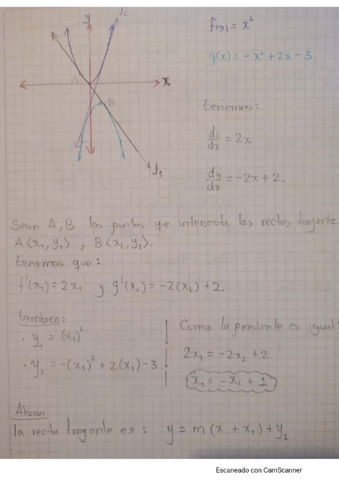 y
f(x) = x²
g(x) = -x² + 2x - 3
A
x
B
y₁
tenemos:
dy/dx = 2x
dy/dx = -2x + 2.
Sean A, B los puntos que intersecta las rectas tangente
A(x₁, y₁), B(x₂, y₂).
tenemos que:
f'(x₁) = 2x₁ y g'(x₂) = -2(x₂) + 2
también:
· y₁ = (x₁)²
· y₂ = -(x₂)² + 2(x₂) - 3
Como la pendiente es igual:
2x₁ = -2x₂ + 2
x₁ = -x₂ + 1
Ahora:
la recta tangente es: y = m(x + x₁) + y₁
Escaneado con CamScanner